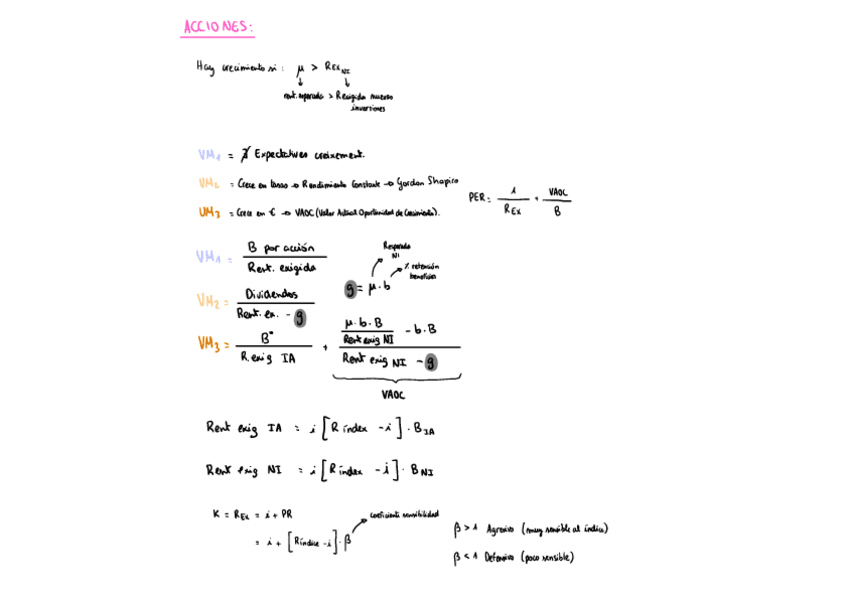 ACCIONES:
Hay crecimiento si: μ > REx NI
rent. esperada > R exigida nuevas inversiones
VM1 = ∄ Expectatives creixement.
VM2 = Crece en tasas → Rendimiento Constante → Gordon Shapiro
VM3 = Crece en € → VAOC (Valor Actual Oportunidad de Crecimiento).
PER = 1 / REx + VAOC / B
VM1 = B por acción / Rent. exigida
VM2 = Dividendos / Rent. ex. - g
g = μ · b
NI
% retención beneficios
VM3 = B* / R. exig IA + (μ · b · B / Rent exig NI - b · B) / Rent exig NI - g
VAOC
Rent exig IA = i [R índex - i] · B IA
Rent exig NI = i [R índex - i] · B NI
K = REx = i + PR
= i + [R índice - i] · β
coeficiente sensibilidad
β > 1 Agresivo (muy sensible al índice)
β < 1 Defensivo (poco sensible)